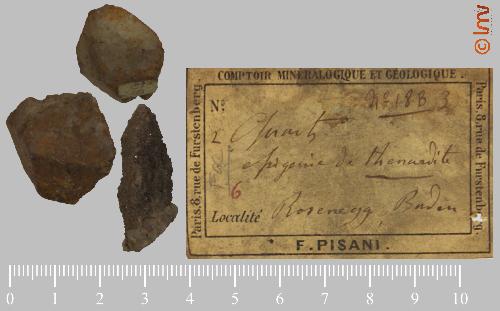 © lmv
COMPTOIR MINÉRALOGIQUE ET GÉOLOGIQUE.
Paris. 8, rue de Furstenberg.
Paris. 8, rue de Furstenberg.
N.º
No 18B 3
2 Quartz
épigénie de thenardite
6
Localité Rosenegg, Baden
F. PISANI.
0 1 2 3 4 5 6 7 8 9 10